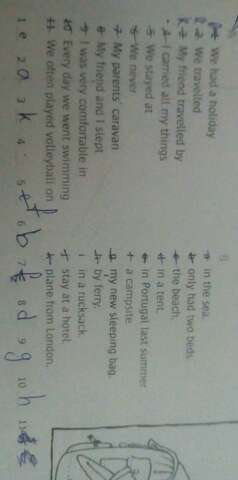 We had a holiday
2 We travelled
3 My friend travelled by
4 I carried all my things
5 We stayed at
6 We never
7 My parents' caravan
8 My friend and I slept
9 I was very comfortable in
10 Every day we went swimming
11 We often played volleyball on
a in the sea.
b only had two beds.
c the beach.
d in a tent.
e in Portugal last summer
f a campsite
g my new sleeping bag.
h by ferry.
i in a rucksack.
j stay at a hotel.
k plane from London.
1 e 2 a 3 k 4 5 f 6 b 7 8 d 9 g 10 h 11